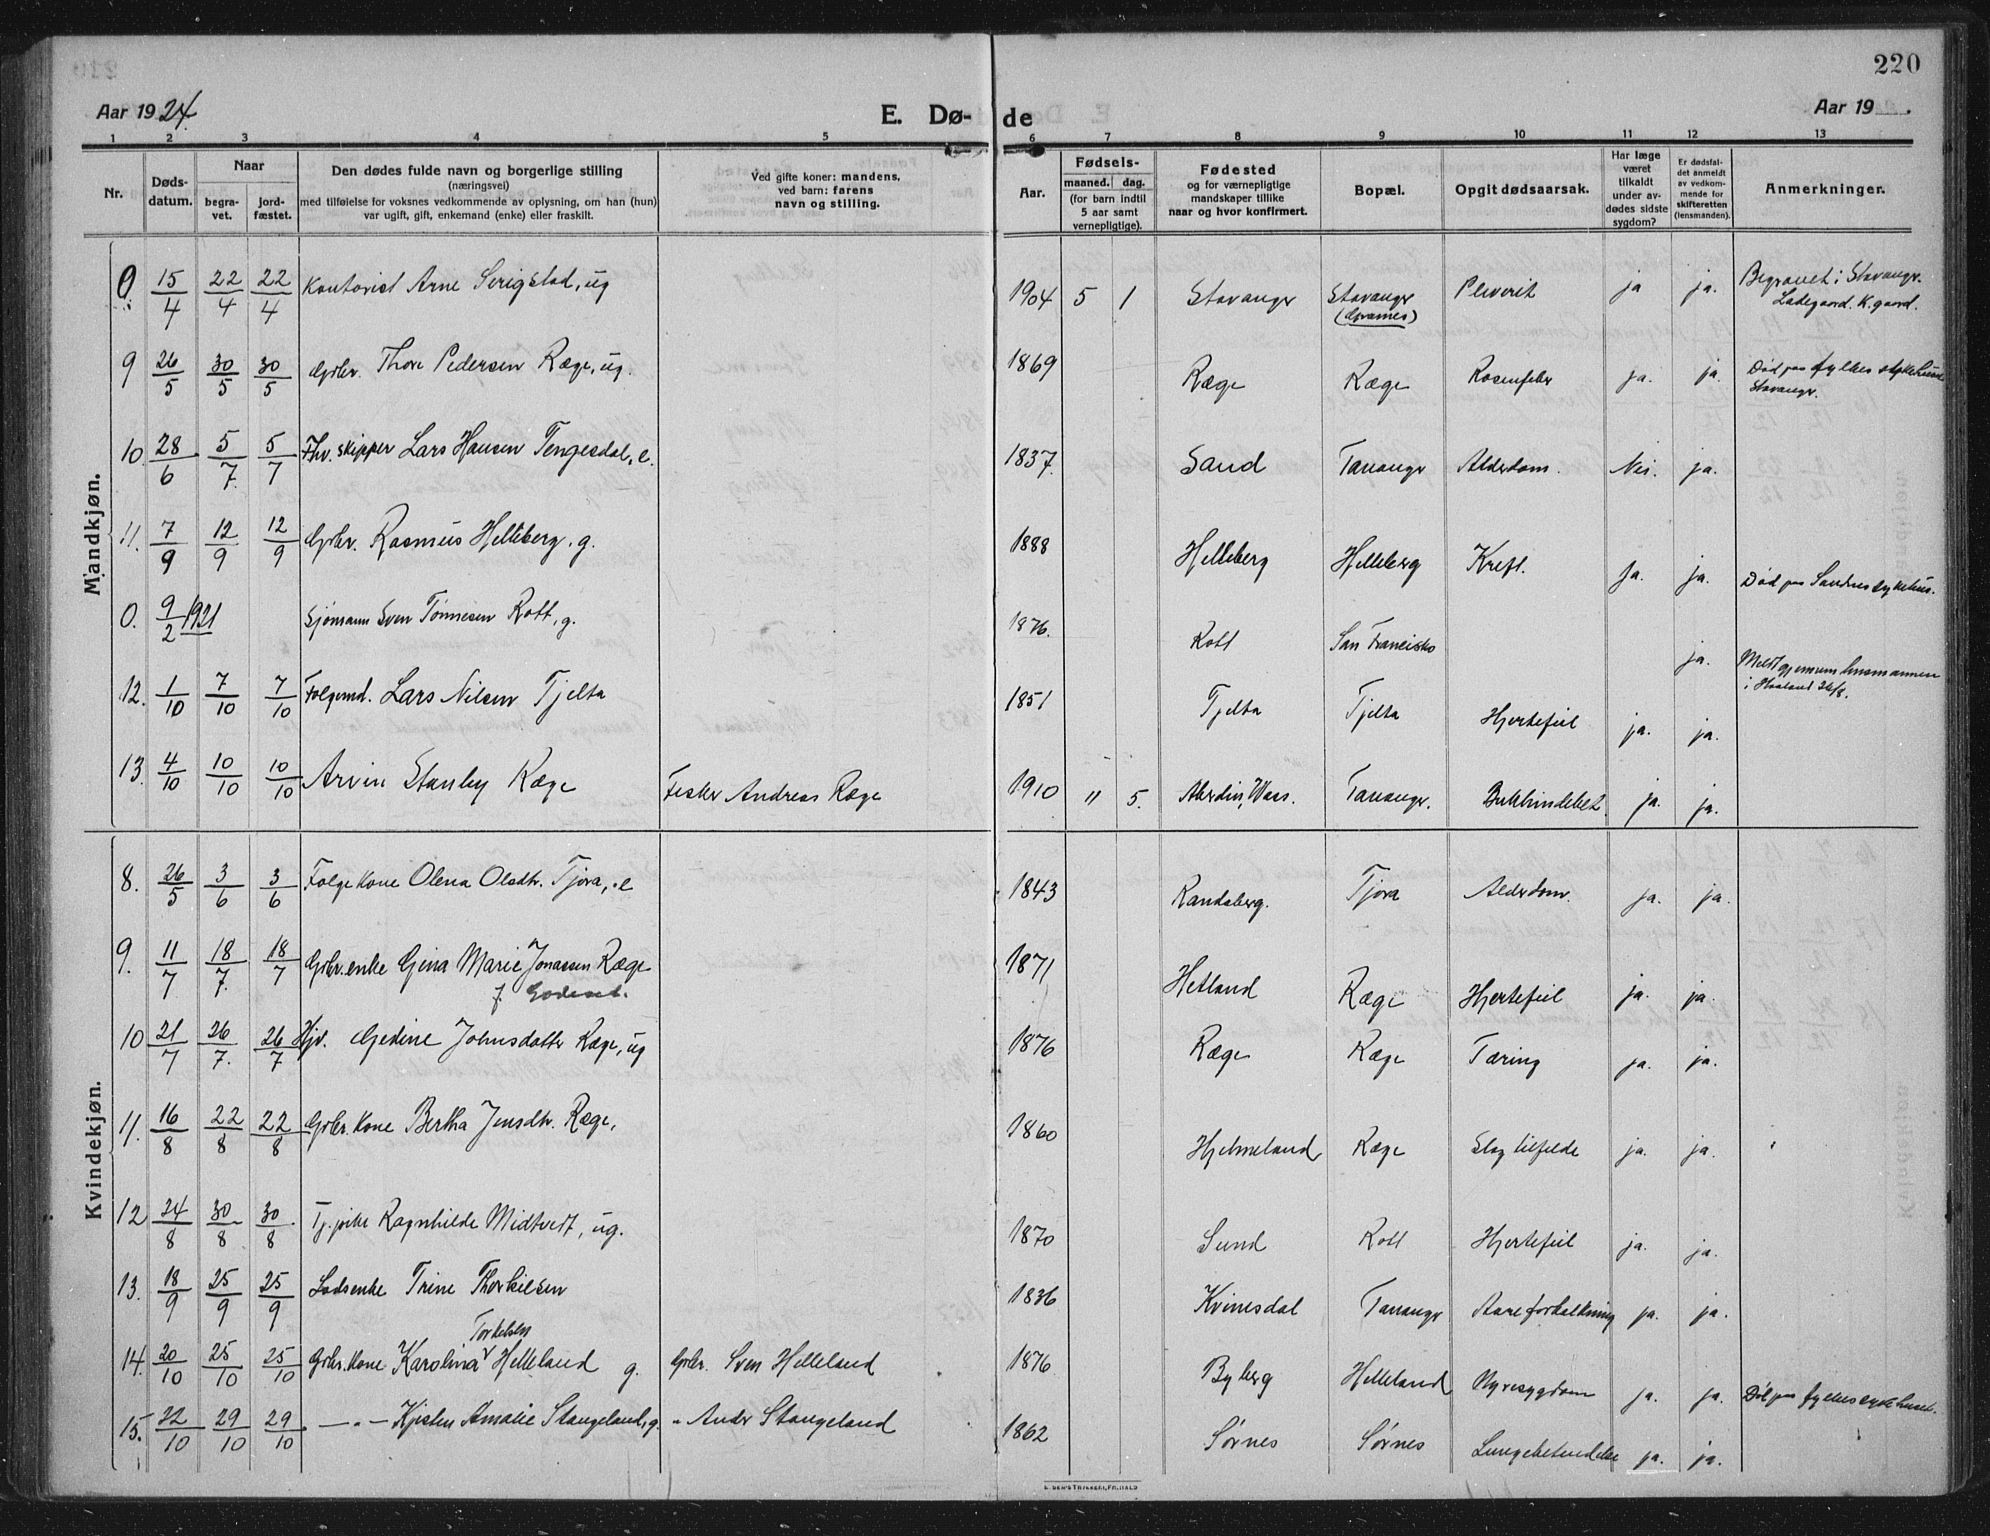 220
Aar 1924
E. Dø-
de
Aar 19
1 2 3 4 5 6 7 8 9 10 11 12 13
Nr.
Døds-
datum.
Naar
begra-
vet.
jord-
fæstet.
Den dødes fulde navn og borgerlige stilling
(næringsvei)
med tilføielse for voksnes vedkommende av oplysning, om han (hun)
var ugift, gift, enkemand (enke) eller fraskilt.
Ved gifte koner: mandens,
ved barn: farens
navn og stilling.
Aar.
Fødsels-
maaned. dag.
(for barn indtil
5 aar samt
vernepligtige).
Fødested
og for værnepligtige
mandskaper tillike
naar og hvor konfirmert.
Bopæl.
Opgit dødsaarsak.
Har læge
været
tilkaldt
under av-
dødes sidste
sygdom?
Er dødsfal-
det anmeldt
av vedkom-
mende for
skifteretten
(lensmanden).
Anmerkninger.
Mandkjøn.
0 15/4 22/4 22/4 Kontorist Arne Serigstad, ug 1904 5 1 Stavanger Stavanger Plevrit ja ja. Begravet i Stavanger.
Ladegaard. K.gaard.
9 26/5 30/5 30/5 Gbr. Thore Pedersen Ræge, ug. 1869 Ræge Ræge Rosenfeber ja. ja. Død paa fylkes sykehuse
Stavanger.
10 28/6 5/7 5/7 Fhv. skipper Lars Hansen Tengesdal, e. 1837. Sand Tananger Alderdom. Nei. ja.
11. 7/9 12/9 12/9 Gbr. Rasmus Helleberg, g. 1888 Helleberg Helleberg Kreft. ja. ja. Død paa Sandnes sykehus.
0. 9/2 1921 Sjømann Sven Tønnesen Rott, g. 1876. Rott San Francisko ja. Meldt gjennem lensmannen
i Haaland 26/8.
12. 1/10 7/10 7/10 Folgemd. Lars Nilsen Tjelta 1851 Tjelta Tjelta Hjertefeil ja. ja.
13. 4/10 10/10 10/10 Arvin Stanley Ræge Fisker Andreas Ræge 1910 11 5. Aberdin, Wass. Tananger. Bukhindebet. ja. ja.
Kvindekjøn.
8. 26/5 3/6 3/6 Folgekone Olena Olsdtr. Tjora, e 1843 Randaberg. Tjora Alderdom. ja. ja.
9. 11/7 18/7. 18/7 Gbr.enke Gina Marie Jonassen Ræge 1871 Hetland Ræge Hjertefeil ja. ja.
f. Godeset.
10 21/7 26/7. 26/7 Hjv. Gedine Johnsdatter Ræge, ug 1876 Ræge Ræge Tæring ja. ja.
11. 16/8 22/8 22/8 Gbr. Kone Bertha Jensdtr. Ræge, 1860 Hjelmeland Ræge Slagtilfelde ja. ja.
12 24/8 30/8 30/8 Tj.pike Ragnhilde Midtvedt, ug. 1870 Sund Rott Hjertefeil ja. ja.
13. 18/9 25/9 25/9 Losenke Trine Thorkilsen 1836 Kvinesdal Tananger Aareforkalkning ja. ja.
Torkelsen
14. 20/10 25/10 25/10 Gbr.kone Karolina Helleland g. Gbr. Sven Helleland 1876 Byberg Helleland Nyresygdom ja. ja. Død paa fylkessykehuset.
15. 22/10 29/10 29/10 — " — Kjisten Amalie Stangeland, g. " Ander Stangeland 1862 Sørnes Sørnes Lungebetendelse ja. ja.